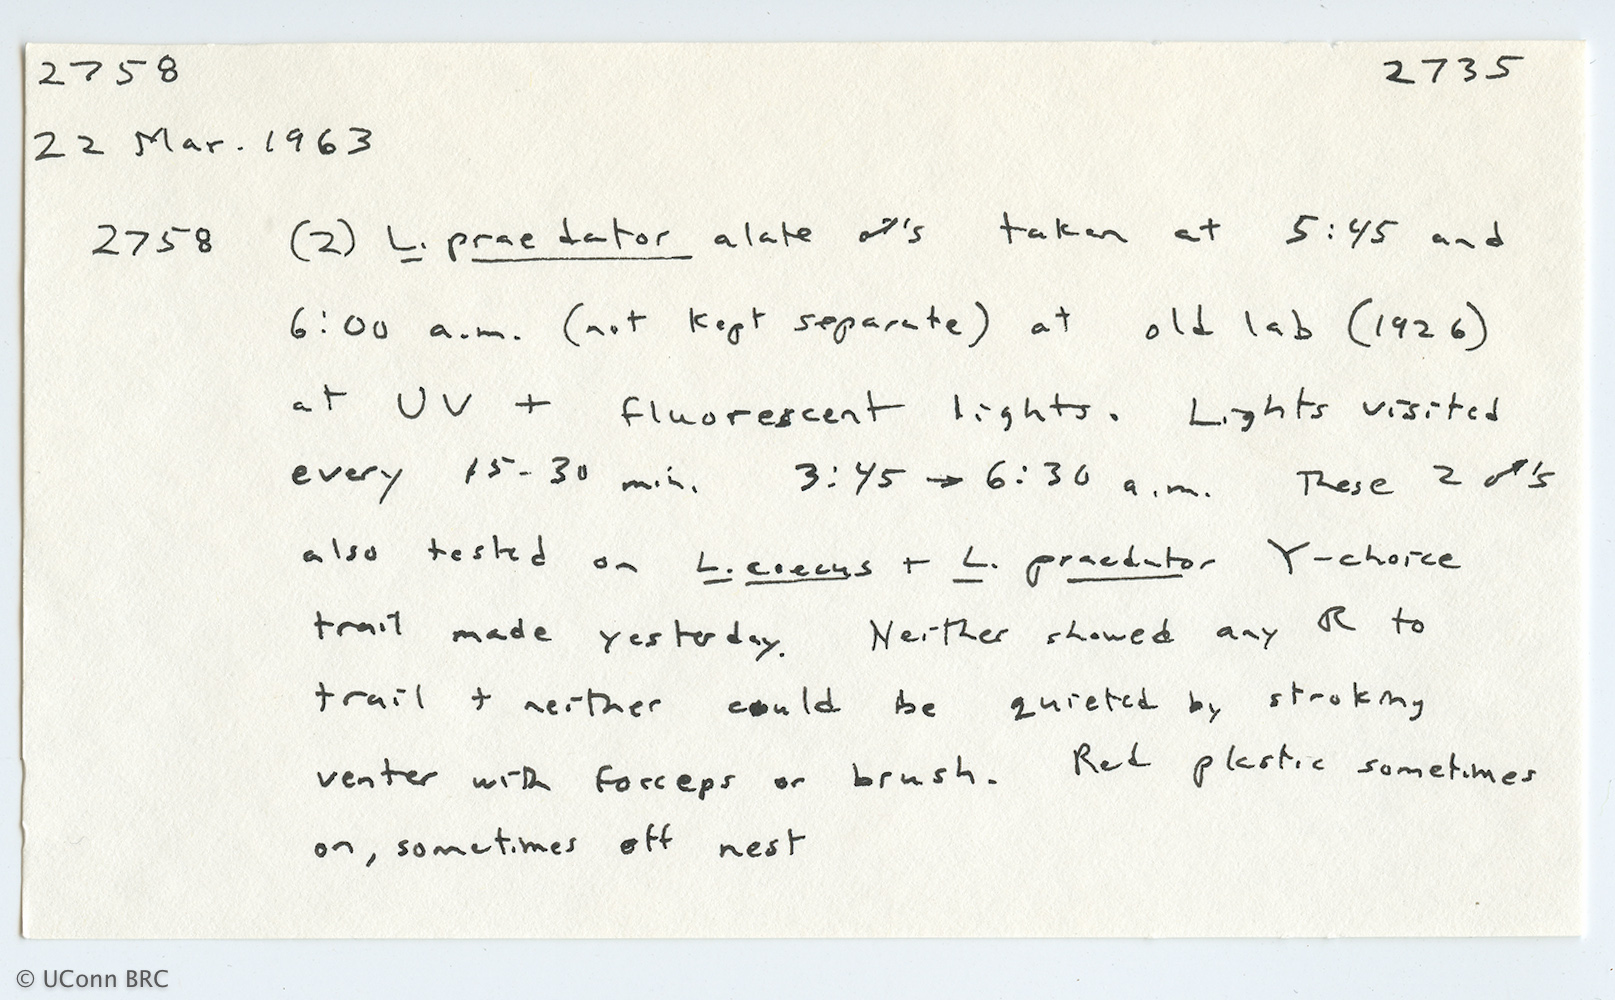 2758 2735
22 Mar. 1963
2758 (2) L. praedator alate ♂'s taken at 5:45 and
6:00 a.m. (not kept separate) at old lab (1926)
at UV + fluorescent lights. Lights visited
every 15-30 min. 3:45 → 6:30 a.m. These 2 ♂'s
also tested on L. coecus + L. praedator Y-choice
trail made yesterday. Neither showed any R to
trail + neither could be quieted by stroking
venter with forceps or brush. Red plastic sometimes
on, sometimes off nest
© UConn BRC